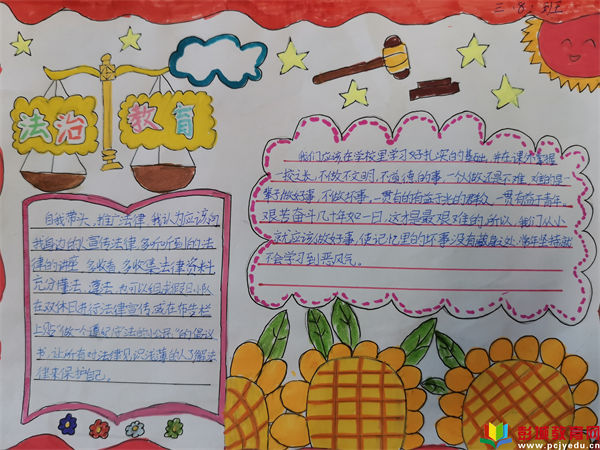 三.8.班
法治 教育
自我带头,推广法律,我认为应该向
我身边的人宣传法律,多听听到的法
律的讲座,多收看,多收集法律资料
充分懂法、遵法,也可以组成假日小队
在双休日进行法律宣传,或在作学栏
上贴"做一个遵纪守法的小公民"的倡议
书,让所有对法律见识浅薄的人了解法
律来保护自己。
我们应该在学校里学习好扎实的基础,并在课外掌握
一技之长,不做不文明,不道德的事,一个人做还是不难,难的是一
辈子做好事,不做坏事,一贯有的有益于的群众,一贯有益于青年,
艰苦奋斗几十年如一日,这才是最艰难的,所以,我们从小
就应该做好事,使记忆里的坏事没有藏身之处,常年坚持就
不会学习到恶风气。
彭城教育网
www.pcjyedu.cn